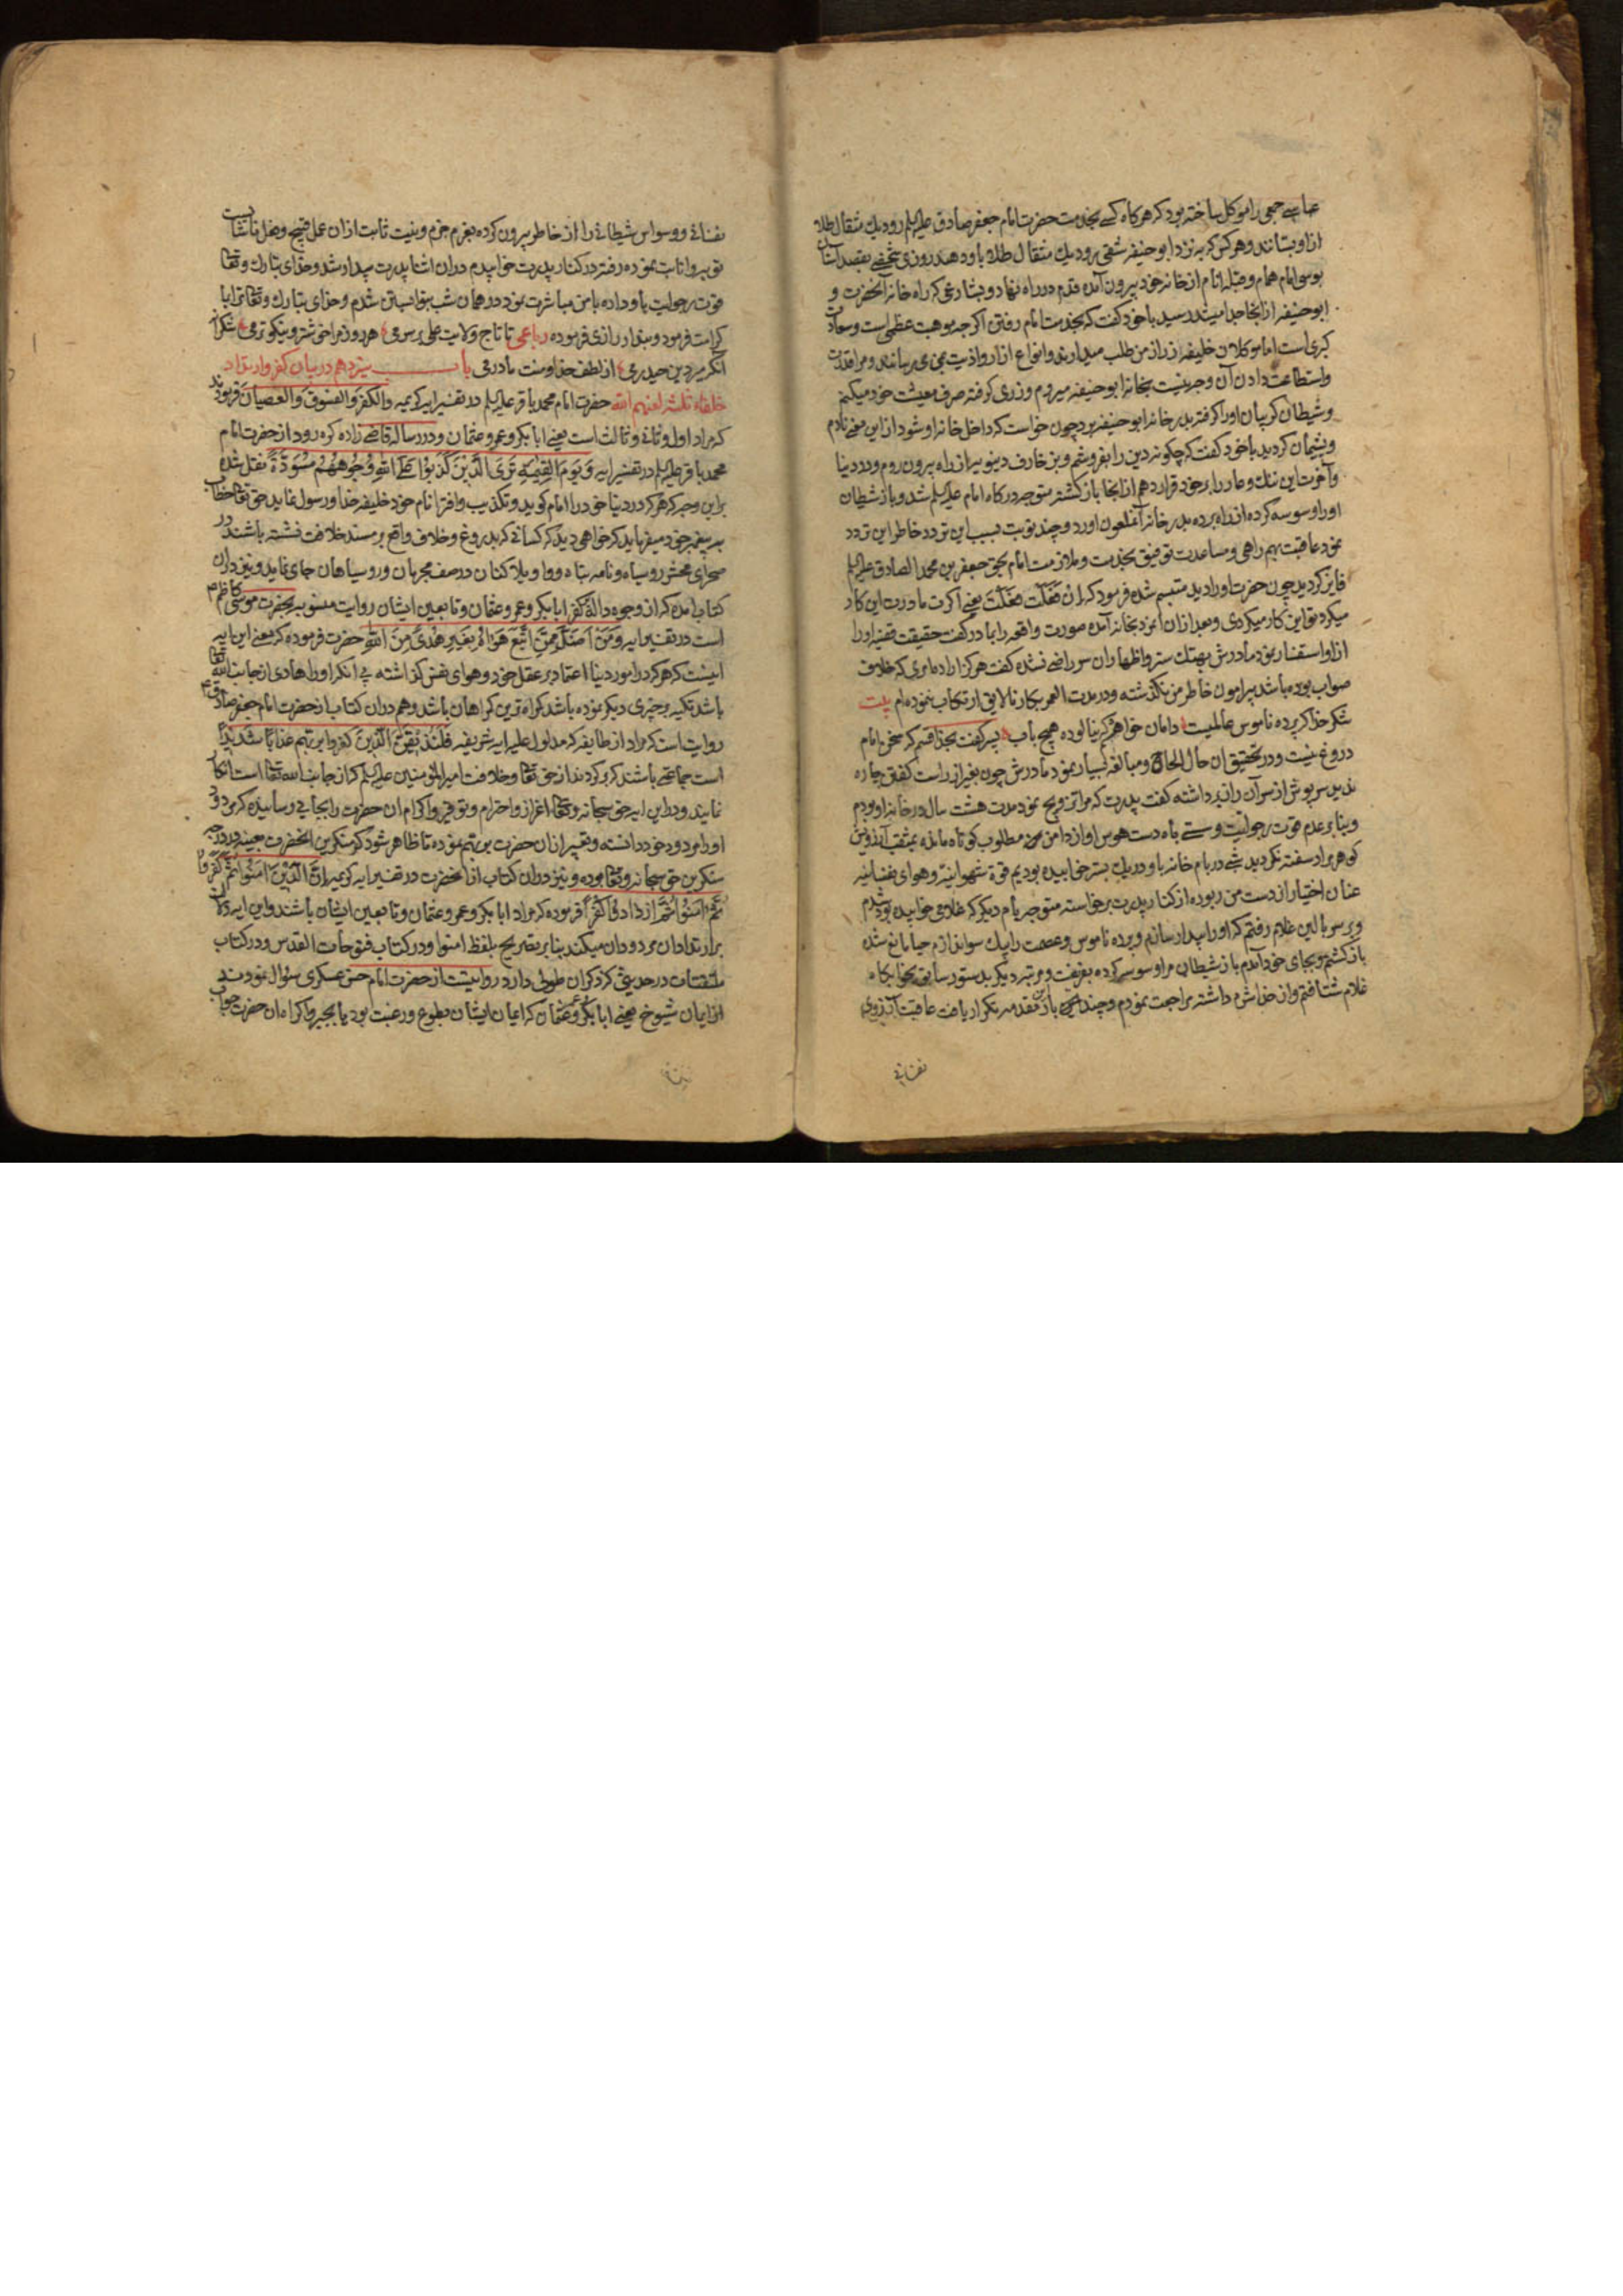 عباسی جمعی را موکل ساخته بود که هرکاه کسی بخدمت حضرت امام جعفر صادق علیه السلم رود یك مثقال طلا
ازو بستانند و هر کس که به نزد ابو حنیفه شقی رود یك مثقال طلا باو دهند روزی شخصی بقصد آستان
بوسی امام همام و قبله انام از خانه خود بیرون آمده قدم در راه نهاد و بشارعی که راه خانه آنحضرت و
ابو حنیفه از آنجا جدا میشد رسید با خود کفت که بخدمت امام رفتن اکرچه موهبت عظمی است و سعادت
کبری است اما موکلان خلیفه از من طلب میدارند و انواع ازار و اذیت بمن می رسانند و مرا قدرت
و استطاعت دادن آن وجه نیست بخانه ابو حنیفه میروم و زری کرفته صرف معیشت خود میکنم
و شیطان کریبان او را کرفته بدر خانه ابو حنیفه برد چون خواست که داخل خانه او شود از این معنی نادم
و پشیمان کردید با خود کفت که چکونه دین را بفروشم و بزخارف دینویه از راه بیرون روم و در دنیا
و آخرت این ننك و عار را بر خود قرار دهم از انجا باز کشته متوجه درکاه امام علیه السلم شد و باز شیطان
او را وسوسه کرده از راه برده بدر خانه آنملعون اورد و چند نوبت بسبب این تردد خاطر این تردد
نمود عاقبت بهم راهی و مساعدت توفیق بخدمت و ملازمت امام بحق جعفر بن محمد الصادق علیه السلم
فایز کردید چون حضرت او را دید متبسم شده فرمود که ان فعلت فعلت یعنی اکر مادرت این کار
میکرد تو این کار میکردی و بعد از ان مرد بخانه آمده صورت واقعه را بمادر کفت حقیقت قضیه او را
از او استفسار نمود مادرش بهتك ستر و اظهار ان سر راضی نشده کفت هرکز اراده امری که خلاف
صواب بوده باشد پیرامون خاطر من نکذشته و در مدت العمر بکار نالایق ارتکاب ننموده ام بیت
شکر خدا که پرده ناموس عالمیست دامان خواهرم که نیالوده هیچ باب پسر کفت بخدا قسم که سخن امام
دروغ نیست و در تحقیق ان حال الحاح و مبالغه بسیار نمود مادرش چون بغیر از راست کفتن چاره
ندید سرپوش از سر آن راز برداشته کفت پدرت که مرا تزویج نمود مدت هشت سال در خانه او بودم
و بنا بر عدم قوت رجولیت و سستی باه دست هوس او از دامن مطلوب کوتاه مانده بمثقب آرزویش
کوهر مراد سفته نکردید شبی در بام خانه با او در یك بستر خوابیده بودیم قوة شهوانیه و هوای نفسانیه
عنان اختیار از دست من ربوده از کنار پدرت برخواسته متوجه بام دیکر که غلامی خوابیده بود شدم
و بر سر بالین غلام رفتم که او را بیدار سازم و پرده ناموس و عصمت را بیك سو اندازم حیا مانع شده
باز کشتم و بجای خود آمدم باز شیطان مرا وسوسه کرده بفریفت و مرتبه دیکر بدستور سابق بخوابکاه
غلام شتافتم و از خدا شرم داشته مراجعت نمودم و چند باز این مقدمه تکرار یافت عاقبت آرزوی
نفسانی
نفسانی و وسواس شیطانی را از خاطر بیرون کرده بعزم جزم و نیت ثابت ازان عمل قبیح و فعل ناشایست
توبه و انابت نموده رفته در کنار پدرت خوابیدم دران اثنا پدرت بیدار شد و خدای تبارك و تعالی
قوت رجولیت باو داده با من مباشرت نمود در همان شب بتو ابستن شدم و خدای تبارك و تعالی ترا بما
کرامت فرمود و بندار رازی فرموده رباعی تا تاج ولایت علی بر سرمی هر روز مرا خوشتر و نیکوترمی شکرانه
انکه میر دین حیدرمی از لطف خدا و منت مادرمی باب سیزدهم در بیان کفر و ارتداد
خلفاء ثلثه لعنهم الله حضرت امام محمد باقر علیه السلم در تفسیر ایه کریمه والکفر والفسوق والعصیان فرمودند
که مراد اول و ثانی و ثالث است یعنی ابابکر و عمر و عثمان و در رساله قاضی زاده کره رود از حضرت امام
محمد باقر علیه السلم در تفسیر ایه وَيَوْمَ الْقِيٰمَةِ تَرَى الَّذِينَ كَذَبُوا عَلَى اللهِ وُجُوهُهُم مُسْوَدَّةٌ نقل شده
براین وجه که هر که در دنیا خود را امام کوید و تکذیب و افترا نام خود خلیفه خدا و رسول نماید حق تعالی خطاب
به پیغمبر خود میفرماید که خواهی دید که کسانی که بدروغ و خلاف واقع بر مسند خلافت نشسته باشند در
صحرای محشر روسیاه و نامه تباه و واویلا کنان در صف مجرمان و روسیاهان جای نماید و نیز دران
کتاب امده که از وجوه دالهٔ کفر ابابکر و عمر و عثمان و تابعین ایشان روایت منسوبه بحضرت موسی کاظم ع
است در تفسیر ایه وَمَنْ اَضَلُّ مِمَّنِ اتَّبَعَ هَوٰاهُ بِغَيْرِ هُدًى مِنَ اللهِ حضرت فرموده که معنی این ایه
اینست که هر که در امور دنیا اعتماد بر عقل خود و هوای نفس کذاشته بی انکه او را هادی از جانب الله تعالی
باشد تکیه بر چیزی دیکر نموده باشد کمراه ترین کمراهان باشد و هم دران کتاب از حضرت امام جعفر صادق ع
روایت است که مراد از طایفه که مدلول علیه ایه شریفه فَلَنُذِيقَنَّ الَّذِينَ كَفَرُوا بربهم عَذَابًا شَدِيدًا
است جماعتی باشند که برکردند از حق تعالی و خلافت امیر المؤمنین علیه السلم که از جانب الله تعالی است انکار
نمایند و دراین ایه حق سبحانه و تعالی اعزاز و احترام و توقیر و اکرام ان حضرت را بجایی رسانیده که مردود
او را مردود خود دانسته و تعبیر ازان حضرت بربهم نموده تا ظاهر شود که منکرین انحضرت بعینه در درجه
منکرین حق سبحانه و تعالی بوده و نیز دران کتاب از انحضرت در تفسیر ایه کریمه اِنَّ الَّذِينَ اٰمَنُوا ثُمَّ كَفَرُوا
ثُمَّ اٰمَنُوا ثُمَّ ازْدَادُوا كُفْرًا فرموده که مراد ابابکر و عمر و عثمان و تابعین ایشان باشند و این ایه دال
بر ارتداد ان مردودان میکند بنا بر تصریح بلفظ امنوا و در کتاب فتوحات القدس و در کتاب
ملتقتات در حدیثی که ذکر ان طولی دارد روایتست از حضرت امام حسن عسکری سؤال نمودند
از ایمان شیوخ یعنی ابابکر و عمر و عثمان که ایمان ایشان بطوع و رغبت بود یا بجبر و اکراه ان حضرت جواب